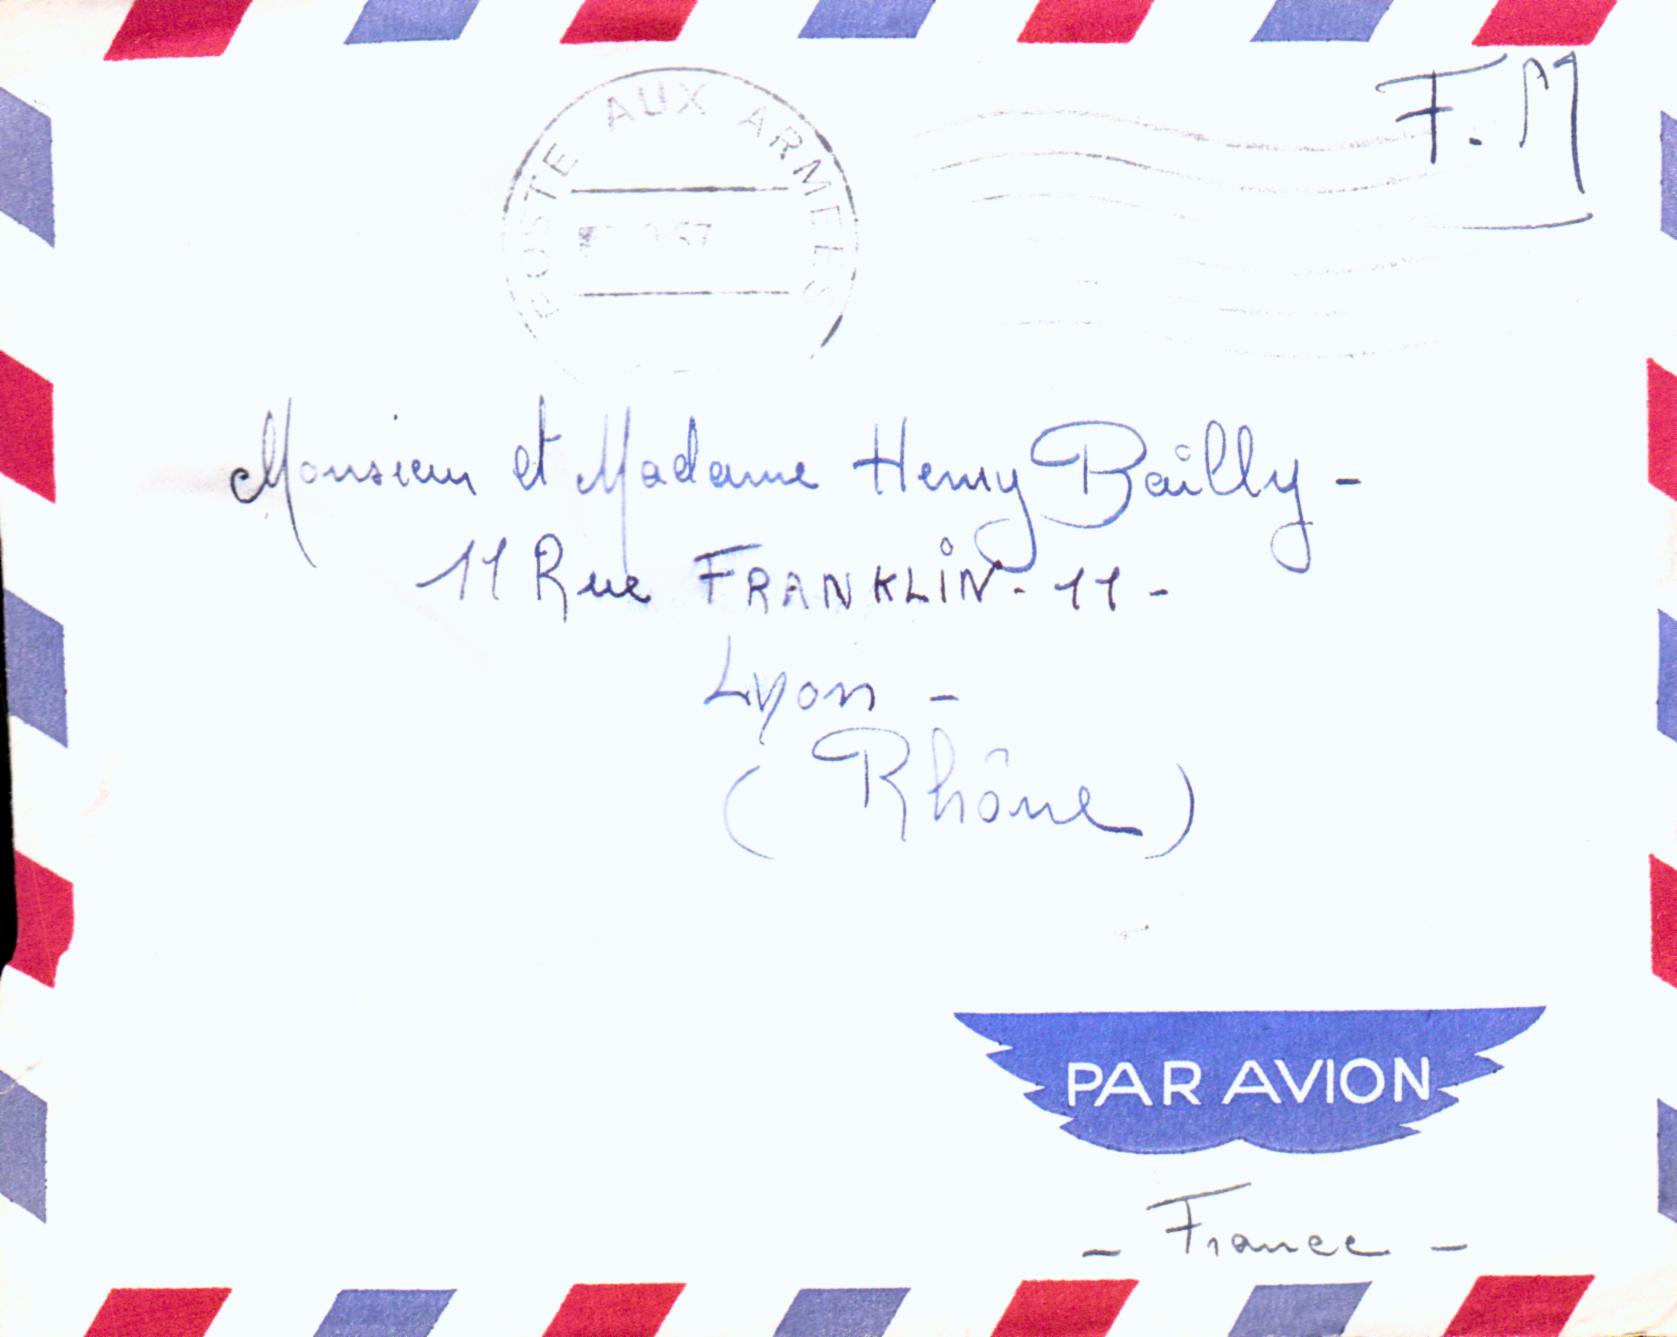 F. M
POSTE AUX ARMEES
57
Monsieur et Madame Henry Bailly -
11 Rue FRANKLIN - 11 -
Lyon -
( Rhône )
PAR AVION
- France -